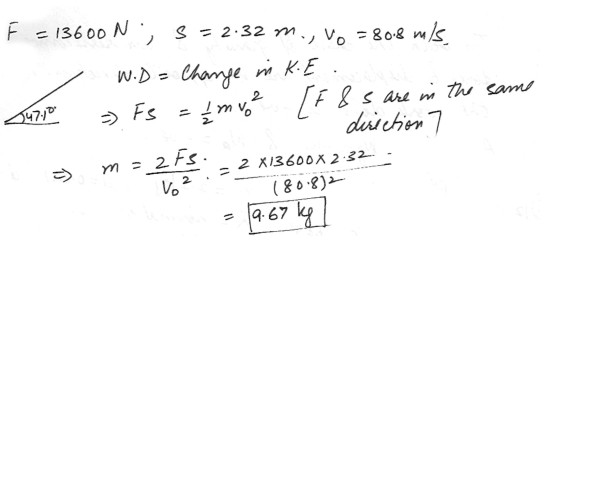 F = 13600 N ; s = 2.32 m., V₀ = 80.8 m/s.
47.1°
W.D = Change in K.E.
⇒ Fs = 1/2 m v₀² [F & s are in the same direction]
⇒ m = 2 Fs. / V₀² = 2 x 13600 x 2.32 / (80.8)²
= 9.67 kg